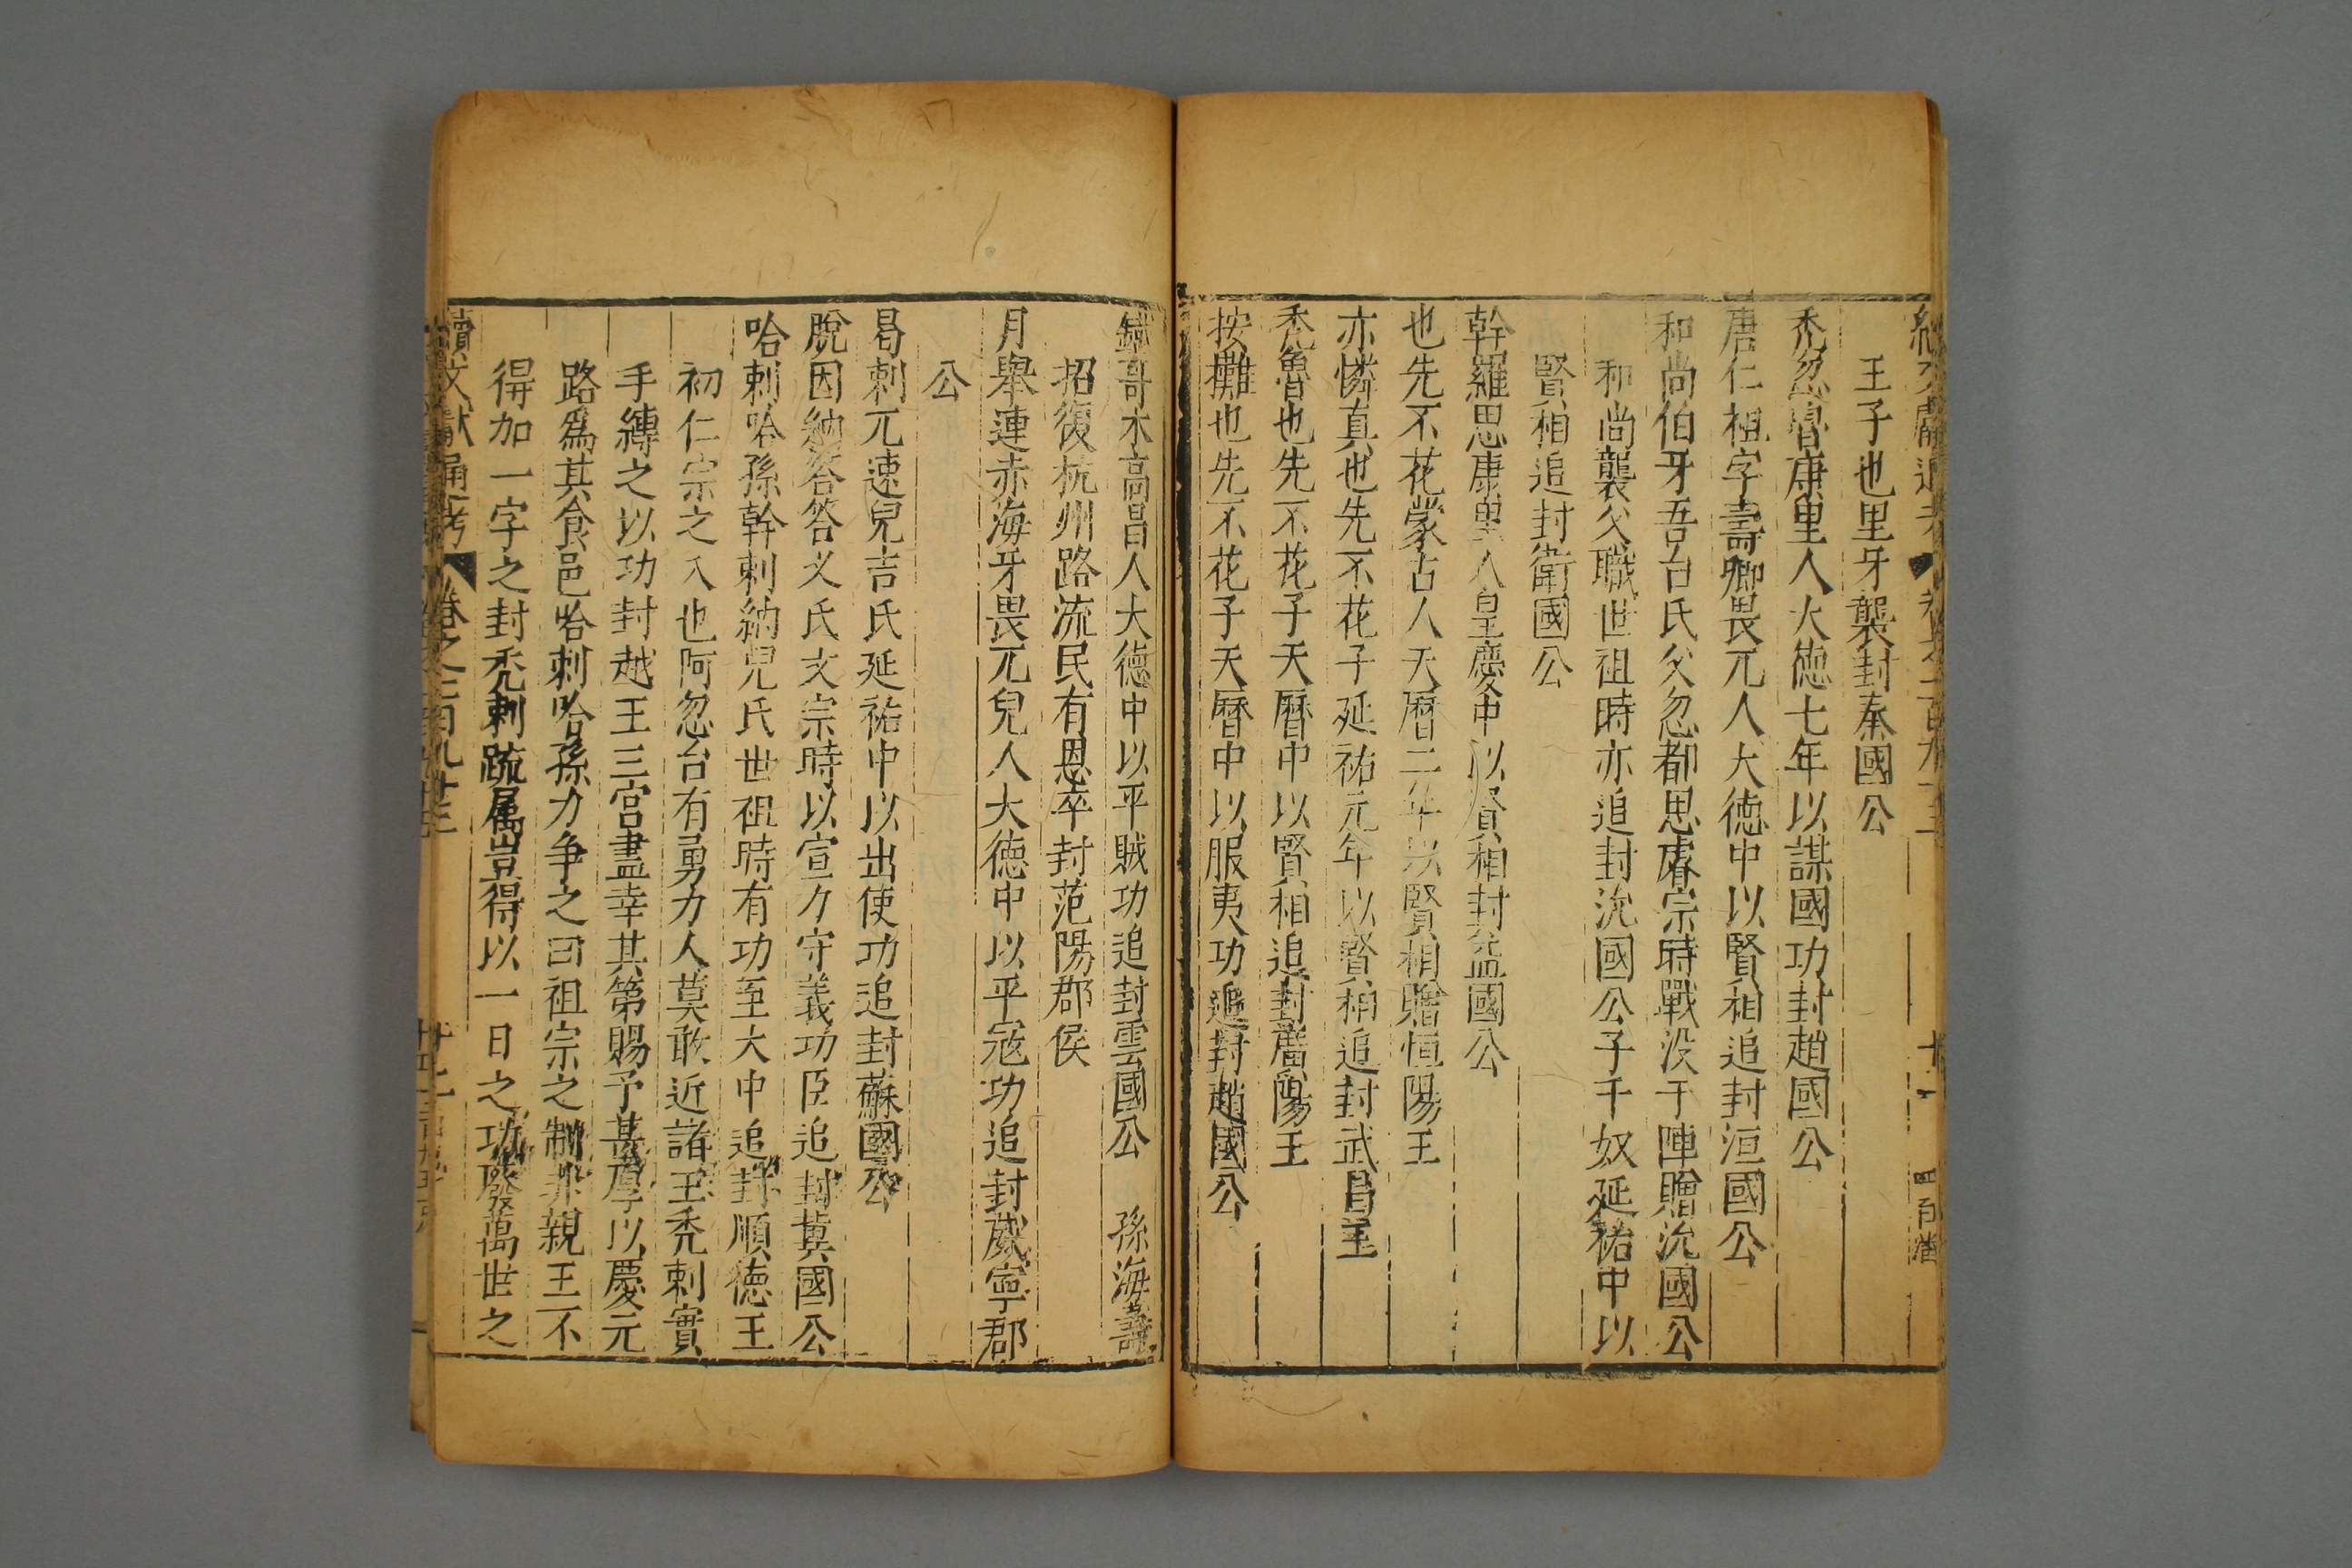 王子也里牙襲封秦國公
禿忽魯康里人大德七年以謀國功封趙國公
唐仁祖字壽卿畏兀人大德中以賢相追封洹國公
和尚伯牙吾台氏父忽都思睿宗時戰沒于陣贈沇國公
和尚襲父職世祖時亦追封沇國公子千奴延祐中以
賢相追封衛國公
斡羅思康里人皇慶中以賢相封益國公
也先不花蒙古人天曆二年以賢相贈恒陽王
亦憐真也先不花子延祐元年以賢相追封武昌王
禿魯也先不花子天曆中以賢相追封廣陽王
按攤也先不花子天曆中以服夷功追封趙國公
鐵哥朮高昌人大德中以平賊功追封雲國公 孫海壽
招復杭州路流民有恩卒封范陽郡侯
月舉連赤海牙畏兀兒人大德中以平寇功追封威寧郡
公
曷剌兀速兒吉氏延祐中以出使功追封蘇國公
脫因納答答义氏文宗時以宣力守義功臣追封冀國公
哈剌哈孫斡剌納兒氏世祖時有功至大中追封順德王
初仁宗之入也阿忽台有勇力人莫敢近諸王禿剌實
手縛之以功封越王三宮盡幸其第賜予甚厚以慶元
路爲其食邑哈剌哈孫力争之曰祖宗之制非親王不
得加一字之封禿剌疏属豈得以一日之功廢萬世之
續文獻通考 卷之二百九十三